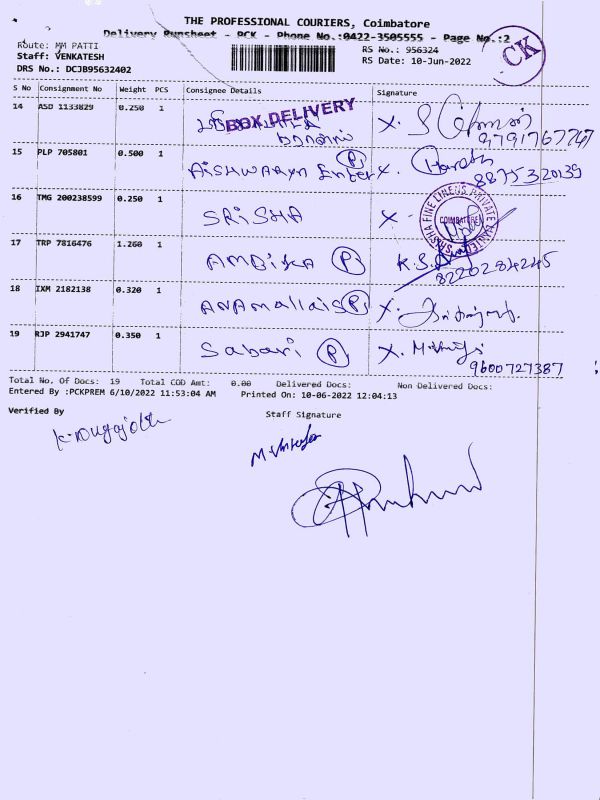 THE PROFESSIONAL COURIERS, Coimbatore
Delivery Runsheet - PCK - Phone No.:0422-3505555 - Page No.:2
CK
Route: MM PATTI
RS No.: 956324
Staff: VENKATESH
RS Date: 10-Jun-2022
DRS No.: DCJB95632402
S No Consignment No Weight PCS Consignee Details Signature
14 ASD 1133829 0.250 1
BOX DELIVERY
9791767747
15 PLP 705801 0.500 1 AISHWARYA Enter P X. Harish
8875320139
16 TMG 200238599 0.250 1 SRISHA X
SRISHA FINE LINENS PRIVATE LIMITED COIMBATORE
17 TRP 7816476 1.260 1 AMBIKA P K.S.
8220284245
18 IXM 2182138 0.320 1 ANAMallais P X.
19 RJP 2941747 0.350 1 Sabari P X.
9600727387
Total No. Of Docs: 19 Total COD Amt: 0.00 Delivered Docs: Non Delivered Docs:
Entered By :PCKPREM 6/10/2022 11:53:04 AM Printed On: 10-06-2022 12:04:13
Verified By
Staff Signature